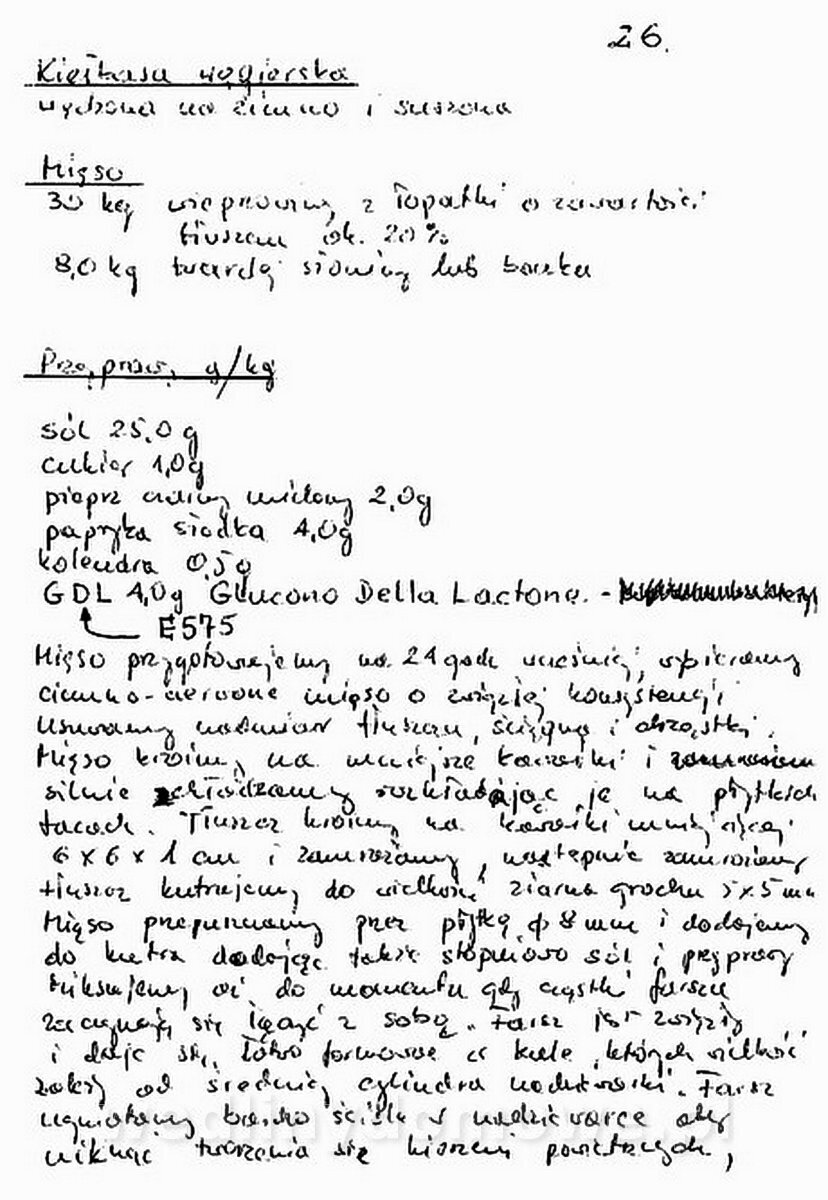 26.
Kiełbasa węgierska
wędzona na zimno i suszona
Mięso
30 kg wieprzowiny z łopatki o zawartości
tłuszczu ok. 20%
8,0 kg twardej słoniny lub boczku
Przyprawy g/kg
sól 25,0g
cukier 1,0g
pieprz czarny mielony 2,0g
papryka słodka 4,0g
kolendra 0,5g
GDL 4,0g Glucono Della Lactone. -
E575
Mięso przygotowujemy na 24 godz wcześniej, wybieramy
ciemno-czerwone mięso o zwięzłej konsystencji
Usuwamy nadmiar tłuszczu, ścięgna i chrząstki.
Mięso kroimy na mniejsze kawałki i
silnie schładzamy rozkładając je na płytkich
tacach. Tłuszcz kroimy na kawałki mniej więcej
6 x 6 x 1 cm i zamrażamy, następnie zamrożony
tłuszcz kutrujemy do wielkości ziarna grochu 5x5mm
Mięso przepuszczamy przez płytkę ϕ 8 mm i dodajemy
do kutra dodając także stopniowo sól i przyprawy
miksujemy aż do momentu gdy cząstki farszu
zaczynają się łączyć z sobą. Farsz jest zwięzły
i daje się łatwo formować w kule, których wielkość
zależy od średnicy cylindra nadziewarki. Farsz
ugniatamy bardzo ściśle w nadziewarce aby
uniknąć tworzenia się kieszeni powietrznych,
wedlinydomowe.pl